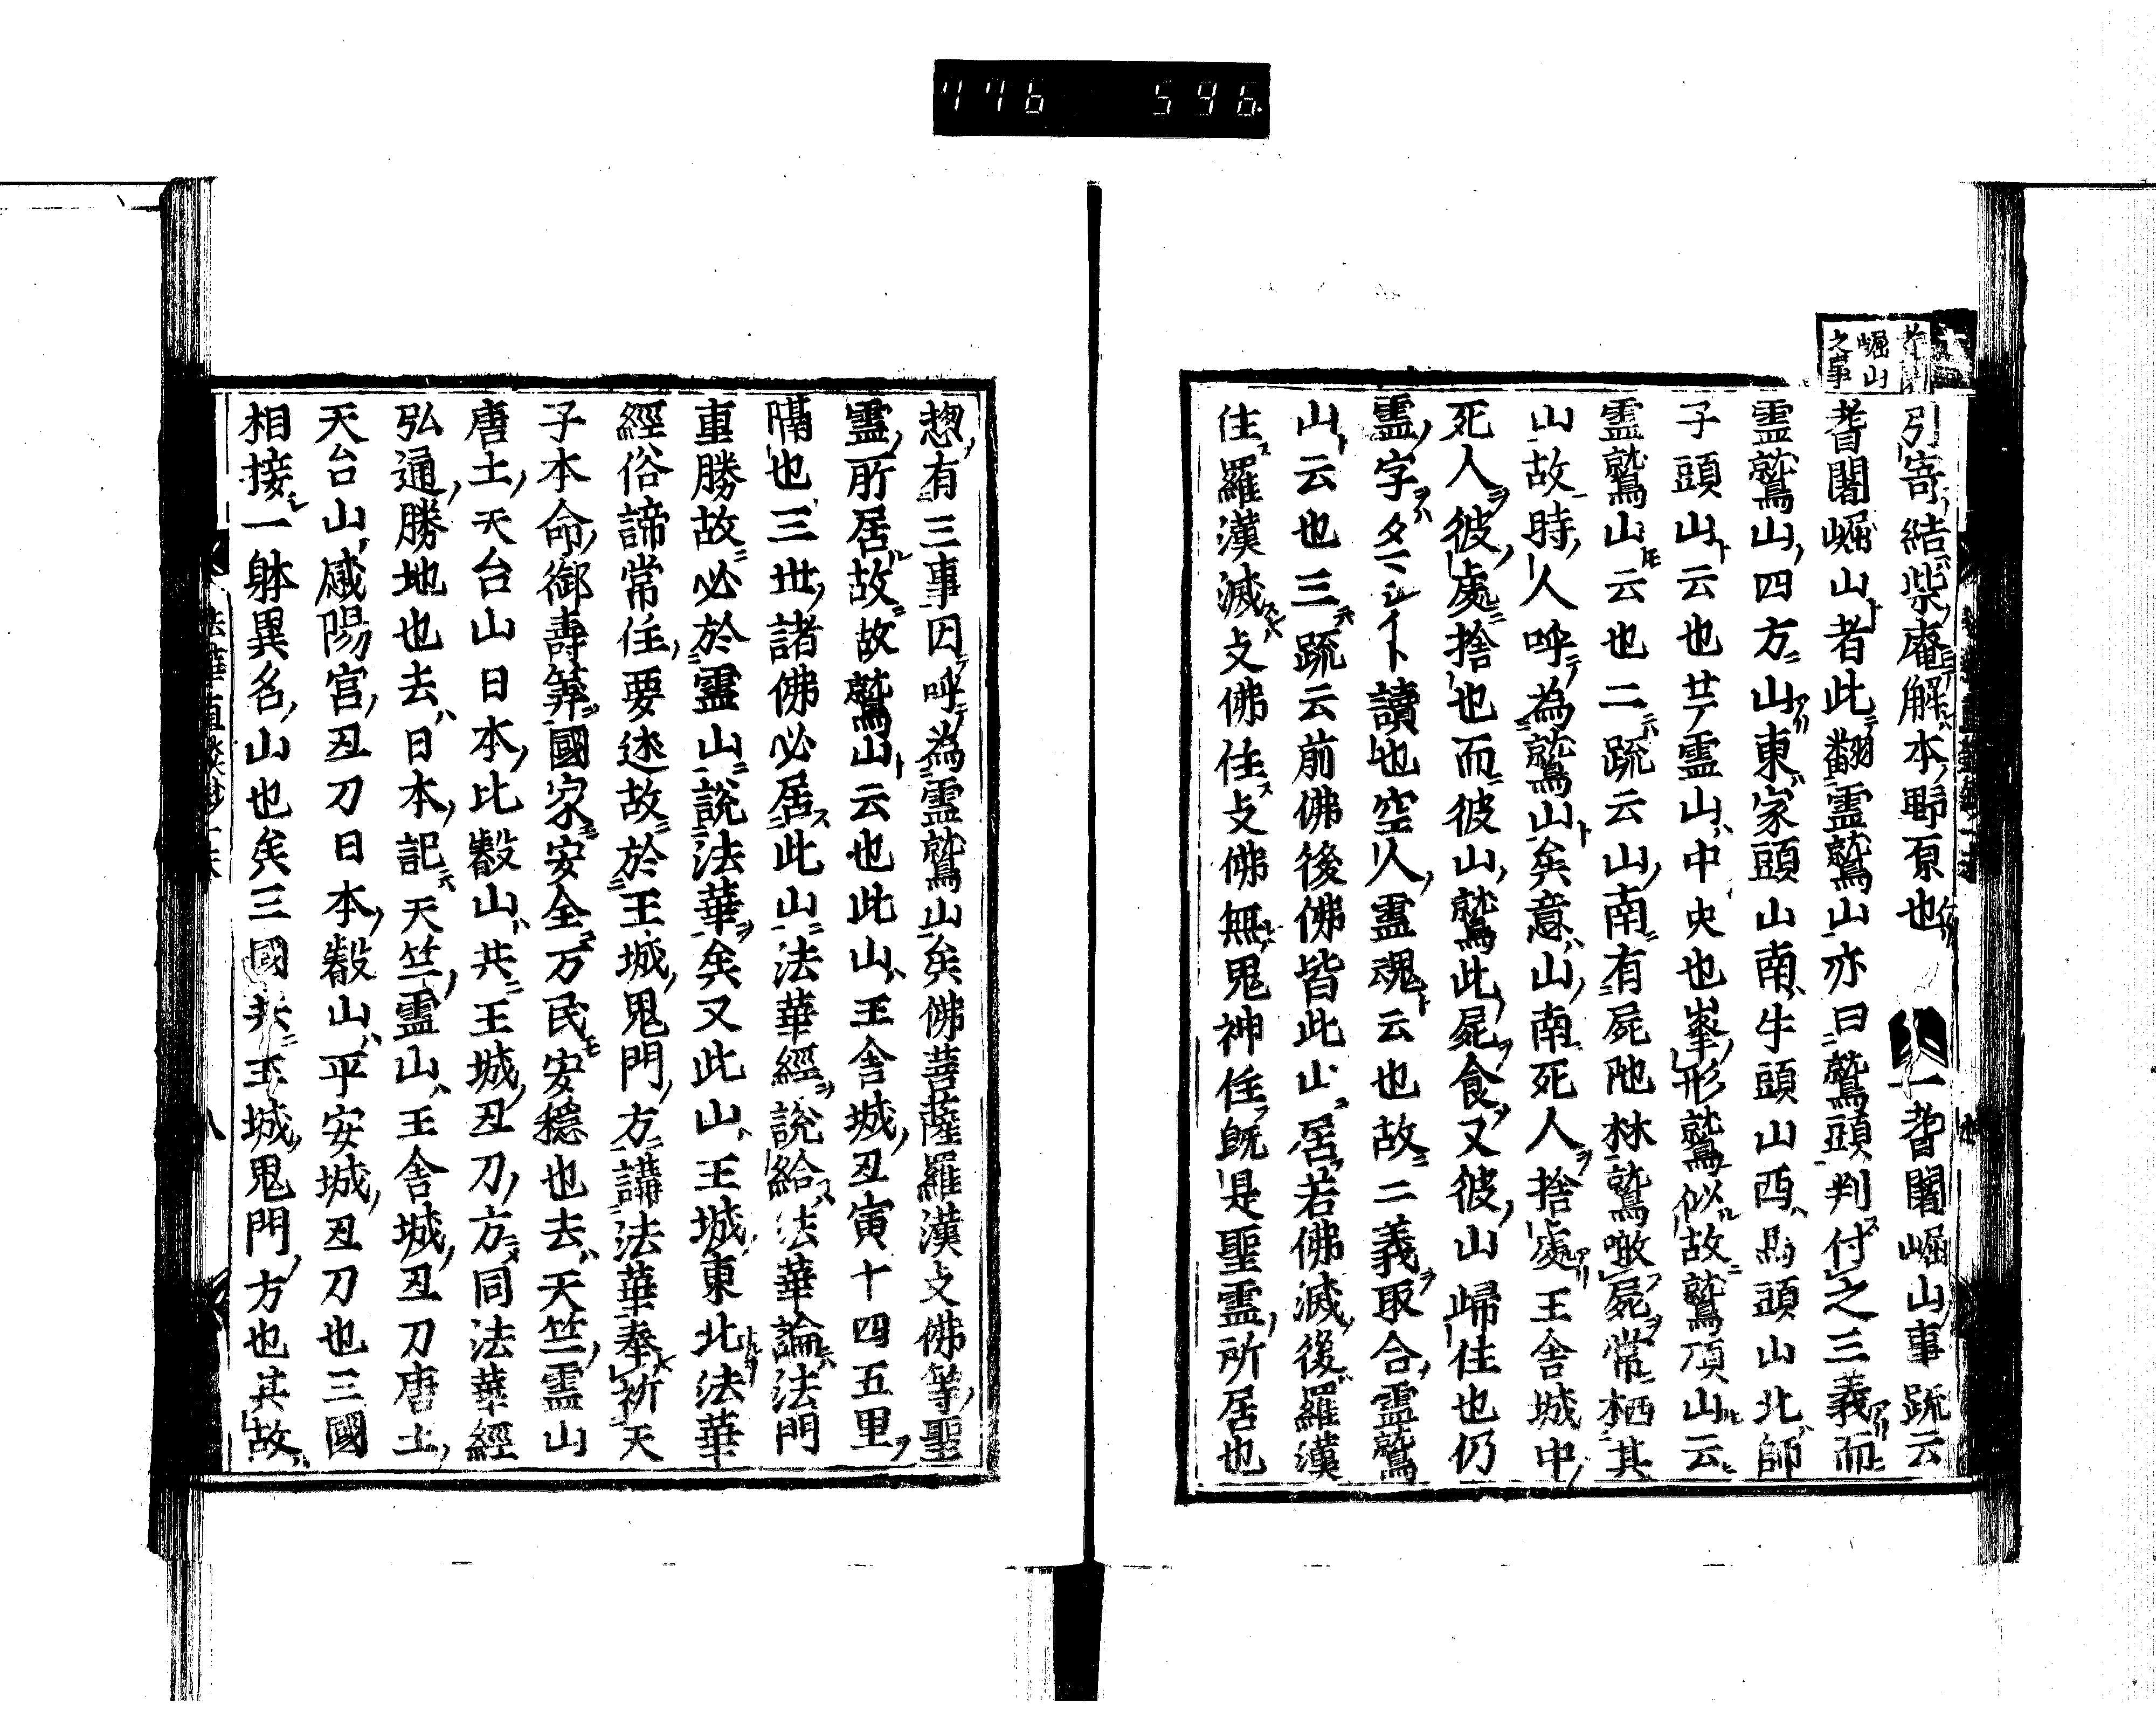 446 596
崛山
之事
引寄結柴庵解本野原也 一耆闍崛山事 疏云
耆闍崛山者此翻霊鷲山亦曰鷲頭判付之三義而
霊鷲山四方山東家頭山南牛頭山西馬頭山北師
子頭山云也サテ霊山中央也峯形鷲似故鷲頂山云
霊鷲山云也二疏云山南有屍陁林鷲噉屍常栖其
山故時人呼為鷲山矣意山南死人捨處王舎城中
死人彼處捨也而彼山鷲此屍食又彼山歸住也仍
霊字タマシイト讀也空人霊魂云也故二義取合霊鷲
山云也三疏云前佛後佛皆此山居若佛滅後羅漢
住羅漢滅支佛住支佛無鬼神住既是聖霊所居也
惣有三事因呼為霊鷲山矣佛菩薩羅漢支佛等聖
霊所居故故鷲山云也此山王舎城丑寅十四五里
隔也三世諸佛必居此山法華經說給法華論法門
重勝故必於霊山說法華矣又此山王城東北法華
經俗諦常住要述故於王城鬼門方講法華奉祈天
子本命御壽算國家安全万民安穏也去天竺霊山
唐土天台山日本比叡山共王城丑刀方同法華經
弘通勝地也去日本記天竺霊山王舎城丑刀唐土
天台山咸陽宮丑刀日本叡山平安城丑刀也三國
相接一躰異名山也矣三國共王城鬼門方也其故
八